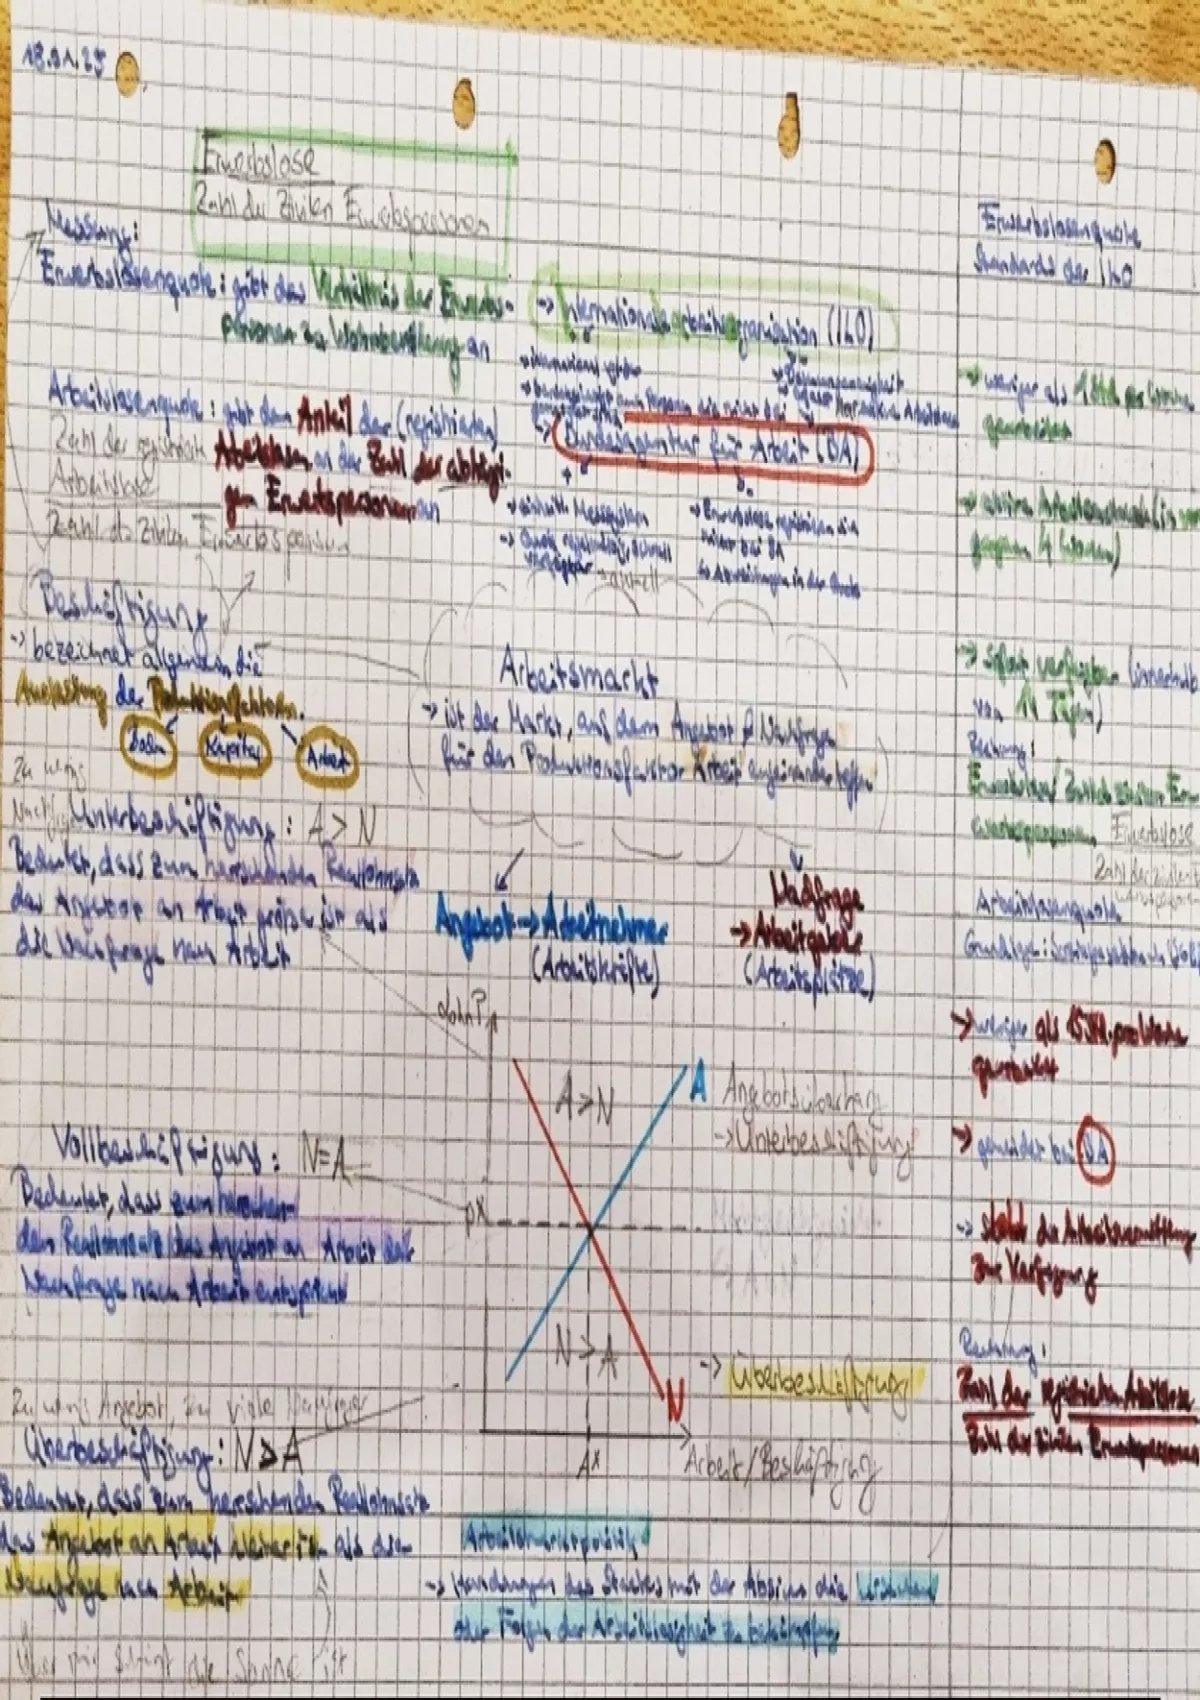 18.01.25
Erwerbslose
Zahl der Zivilen Erwerbspersonen
Messung:
Erwerbslosenquote: gibt das Verhältnis der Erwerbs-
personen zu Wohnbevölkerung an
Arbeitslosenquote: gibt den Anteil der (registrierten)
Arbeitslosen an der Zahl der abhängi-
gen Erwerbspersonen an
Zahl der registrierte
Arbeitslose
Zahl der Zivilen Erwerbspersonen
-> Internationale Arbeitsorganisation (ILO)
-> Bundesagentur für Arbeit (BA)
-> Quote regelmäßig, schnell
verfügbar -> aktuell
-> Erwerbslose registrieren sich
nicht bei BA
↳ Abweichungen in der Quote
Beschäftigung
-> bezeichnet allgemein die
Auslastung der Produktionsfaktoren.
Boden Kapital Arbeit
Arbeitsmarkt
-> ist der Markt, auf dem Angebot & Nachfrage
für den Produktionsfaktor Arbeit aufeinandertreffen
Zu wenig
Nachfrage
Unterbeschäftigung: A > N
Bedeutet, dass zum herrschenden Reallohnsatz
das Angebot an Arbeit größer ist als
die Nachfrage nach Arbeit
Angebot -> Arbeitnehmer
(Arbeitskräfte)
Nachfrage
-> Arbeitgeber
(Arbeitsplätze)
Lohn P
A > N
A
Angebotsüberhang
-> Unterbeschäftigung
Vollbeschäftigung: N=A
Bedeutet, dass zum herrschen-
den Reallohnsatz das Angebot an Arbeit der
Nachfrage nach Arbeit entspricht
p*
N > A
-> Überbeschäftigung
N
A*
Arbeit/Beschäftigung
Zu wenig Angebot, zu viele Nachfrage
Überbeschäftigung: N > A
Bedeutet, dass zum herschenden Reallohnsatz
das Angebot an Arbeit kleiner ist als die
Nachfrage nach Arbeit
Über mir scheint die Sonne
Arbeitsmarktpolitik
-> Handlungen des Staates mit der Absicht die
oder Folgen der Arbeitslosigkeit zu bekämpfen
Erwerbslosenquote
Standards der ILO
-> weniger als 1 Std pro Woche
gearbeitet
-> aktive Arbeitssuche (in
gegangen 4 Wochen)
-> sofort verfügbar (innerhalb
von 14 Tagen)
Rechnung:
Erwerbslose
Arbeitslosenquote
-> weniger als 15 Std. pro Woche
gearbeitet
-> gemeldet bei BA
-> steht der Arbeitsvermittlung
zur Verfügung
Rechnung:
Zahl der registrierten Arbeitslose
Zahl der zivilen Erwerbspersonen